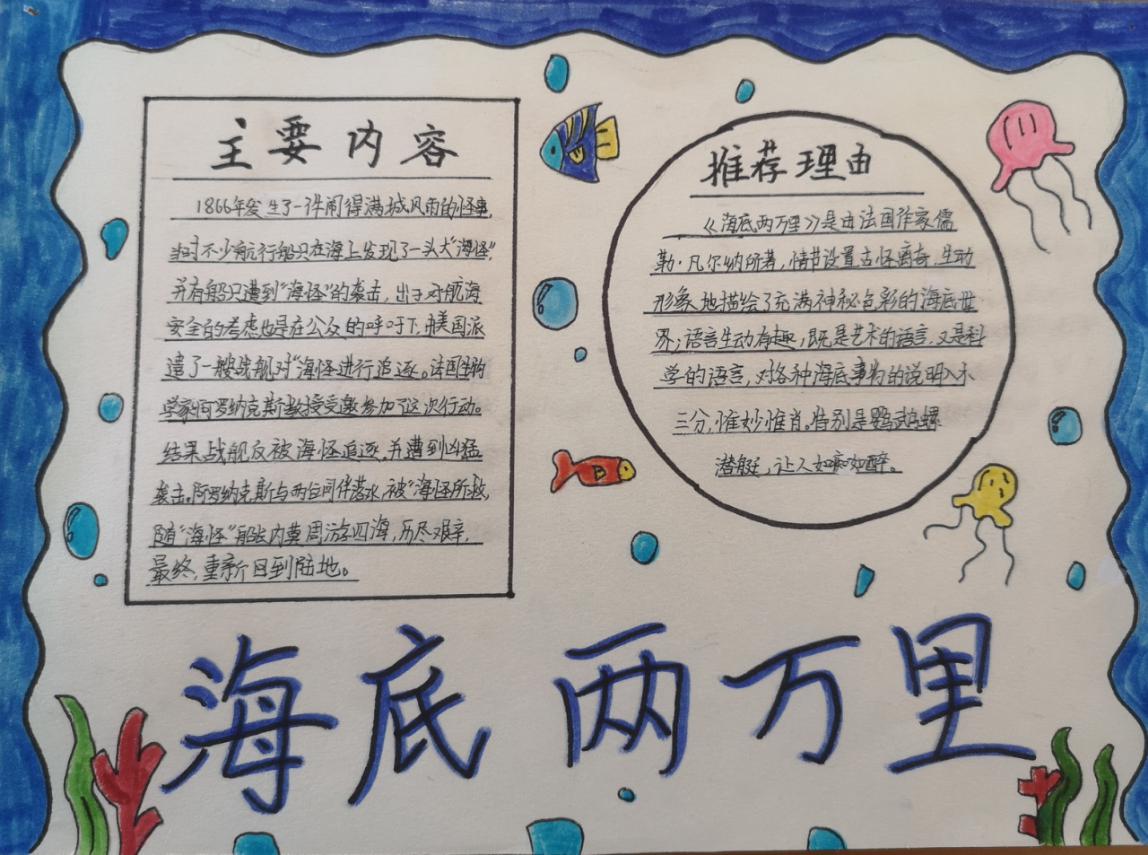 主要内容
1866年发生了一件闹得满城风雨的怪事,
当时不少航行船只在海上发现了一头大“海怪”,
并有船只遭到“海怪”的袭击,出于对航海
安全的考虑也是在公众的呼吁下,由美国派
遣了一艘战舰对“海怪进行追逐。法国生物
学家阿罗纳克斯教授受邀参加了这次行动。
结果战舰反被海怪追逐,并遭到凶猛
袭击。阿罗纳克斯与两位同伴落水,被“海怪所救,
随“海怪”船长内莫周游四海,历尽艰辛,
最终,重新回到陆地。
推荐理由
《海底两万里》是由法国作家儒
勒·凡尔纳所著,情节设置古怪离奇,生动
形象地描绘了充满神秘色彩的海底世
界;语言生动有趣,既是艺术的语言,又是科
学的语言,对各种海底事物的说明入木
三分,惟妙惟肖。特别是鹦鹉螺
潜艇,让人如痴如醉。
海底两万里